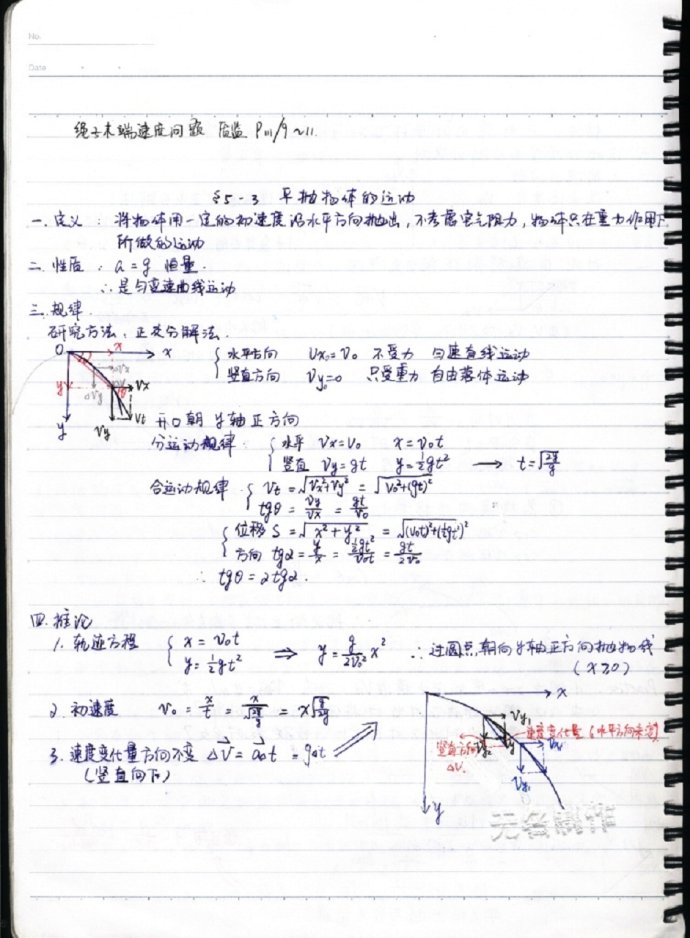 No.
Date
绳子末端速度问题 后盖 P111/9~11.
§5-3 平抛物体的运动
一.定义:将物体用一定的初速度沿水平方向抛出,不考虑空气阻力,物体只在重力作用下
所做的运动
二.性质:a=g 恒量.
∴是匀变速曲线运动
三.规律.
研究方法:正交分解法.
O x x
水平方向 Vx₀=V₀ 不受力 匀速直线运动
竖直方向 Vy₀=0 只受重力 自由落体运动
y θ Vx
Vy Vt
y
开口朝 y轴正方向
分运动规律: { 水平 Vx=V₀ x=V₀t
竖直 Vy=gt y=½gt² → t=√(2y/g)
合运动规律 { Vt=√(Vx²+Vy²)=√(V₀²+(gt)²)
tgθ=Vy/Vx=gt/V₀
{ 位移 S=√(x²+y²)=√((V₀t)²+(½gt²)²)
方向 tgα=y/x=½gt²/V₀t=gt/2V₀
∴ tgθ=2tgα.
四.推论
1.轨迹方程 { x=V₀t
y=½gt² ⇒ y=g/2V₀² x² ∴过圆点朝向y轴正方向抛物线
(x≥0)
2.初速度 V₀=x/t=x/√(2y/g)=x√(g/2y)
3.速度变化量方向不变 ΔV=a₀t=gΔt
(竖直向下)
x
Vy₁
竖直方向
ΔV.
Vy₁
y
无名脚作